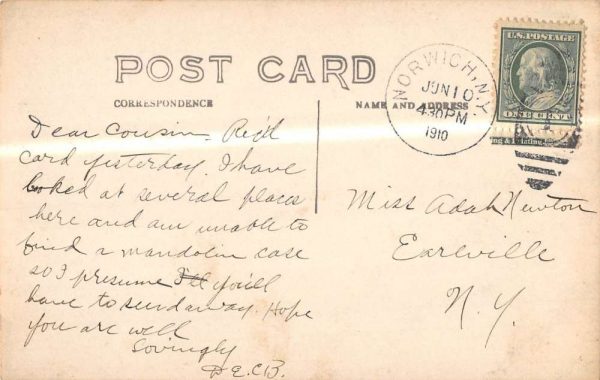 POST CARD
CORRESPONDENCE
NAME AND ADDRESS
NORWICH, N.Y.
JUN 10
430 PM
1910
U.S. POSTAGE
ONE CENT
Dear Cousin - Rec'd
card yesterday. I have
looked at several places
here and am unable to
find a mandolin case
so I presume I'll you'll
have to send away. Hope
you are well
Lovingly
D.E.C.B.
Miss Adah Newton
Earlville
N.Y.